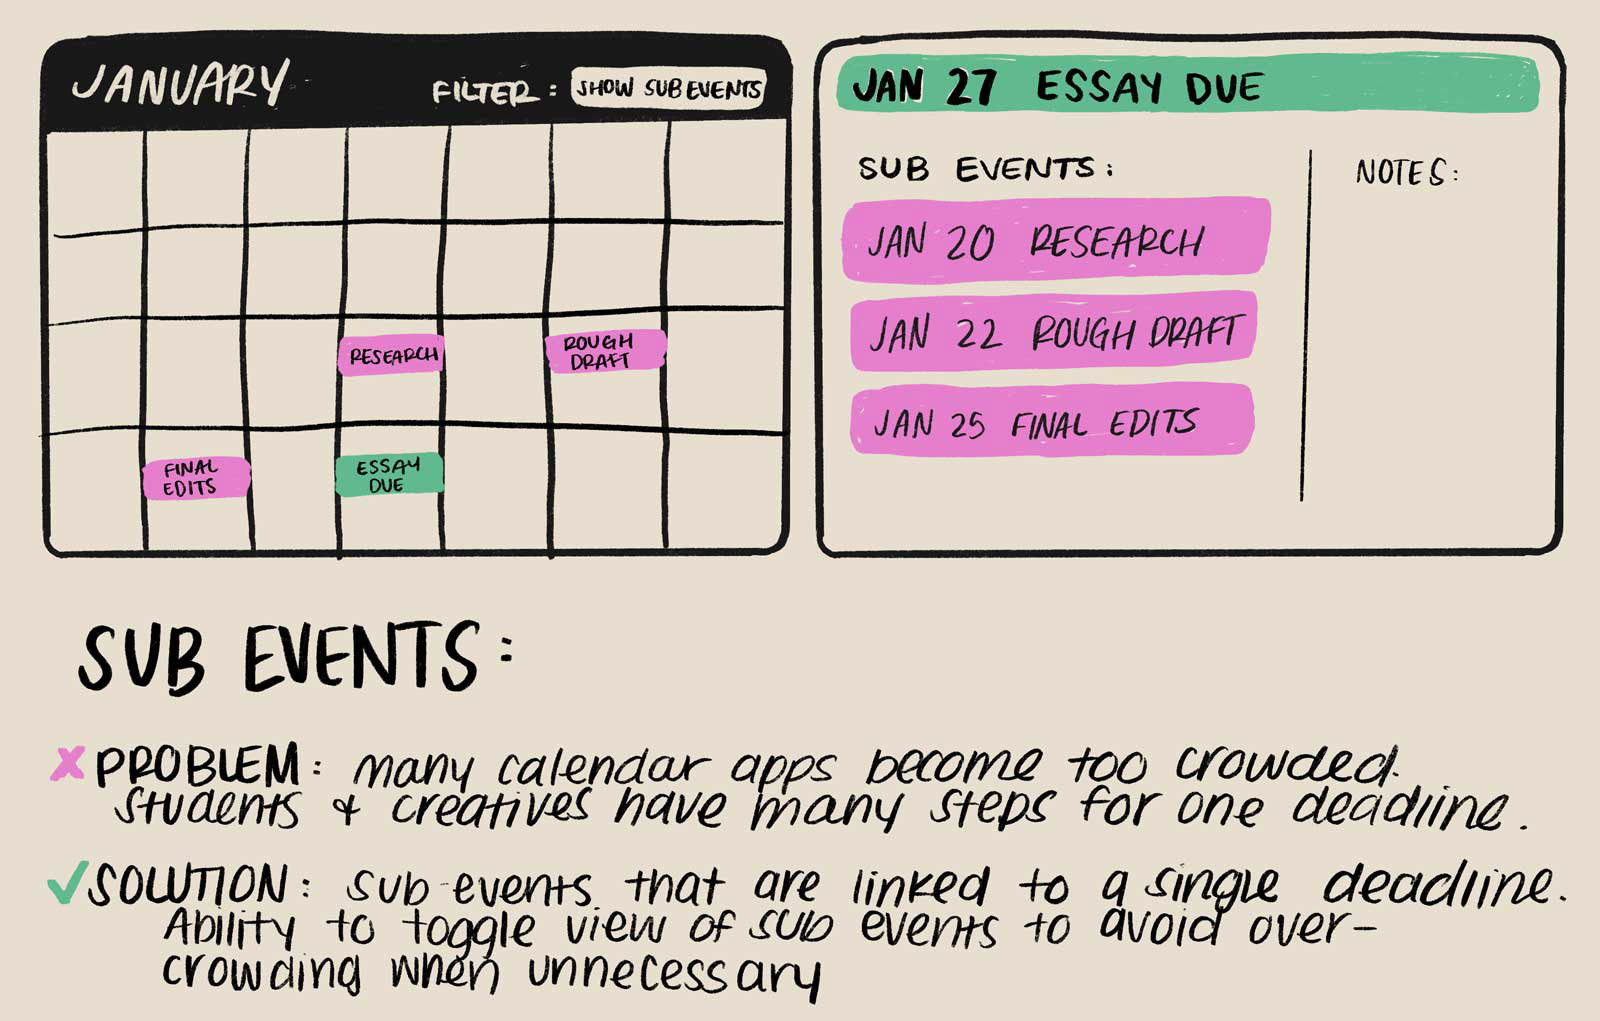 JANUARY
FILTER: SHOW SUB EVENTS
RESEARCH
ROUGH
DRAFT
FINAL
EDITS
ESSAY
DUE
JAN 27 ESSAY DUE
SUB EVENTS:
JAN 20 RESEARCH
JAN 22 ROUGH DRAFT
JAN 25 FINAL EDITS
NOTES:
SUB EVENTS:
X PROBLEM: many calendar apps become too crowded.
students & creatives have many steps for one deadline.
✓ SOLUTION: sub-events that are linked to a single deadline.
Ability to toggle view of sub events to avoid over-
crowding when unnecessary